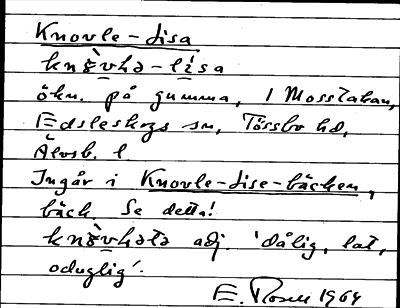 Knovle-disa
knŏ̀vhə-lísa
ökn. på gumma, i Mosstakan,
Edsleskogs sn, Tössbo hd,
Älvsb. l.
Ingår i Knovle-dise-bäcken,
bäck. Se detta!
knŏ̀vhətə adj. 'dålig, lat,
oduglig'.
E. Rosell 1964